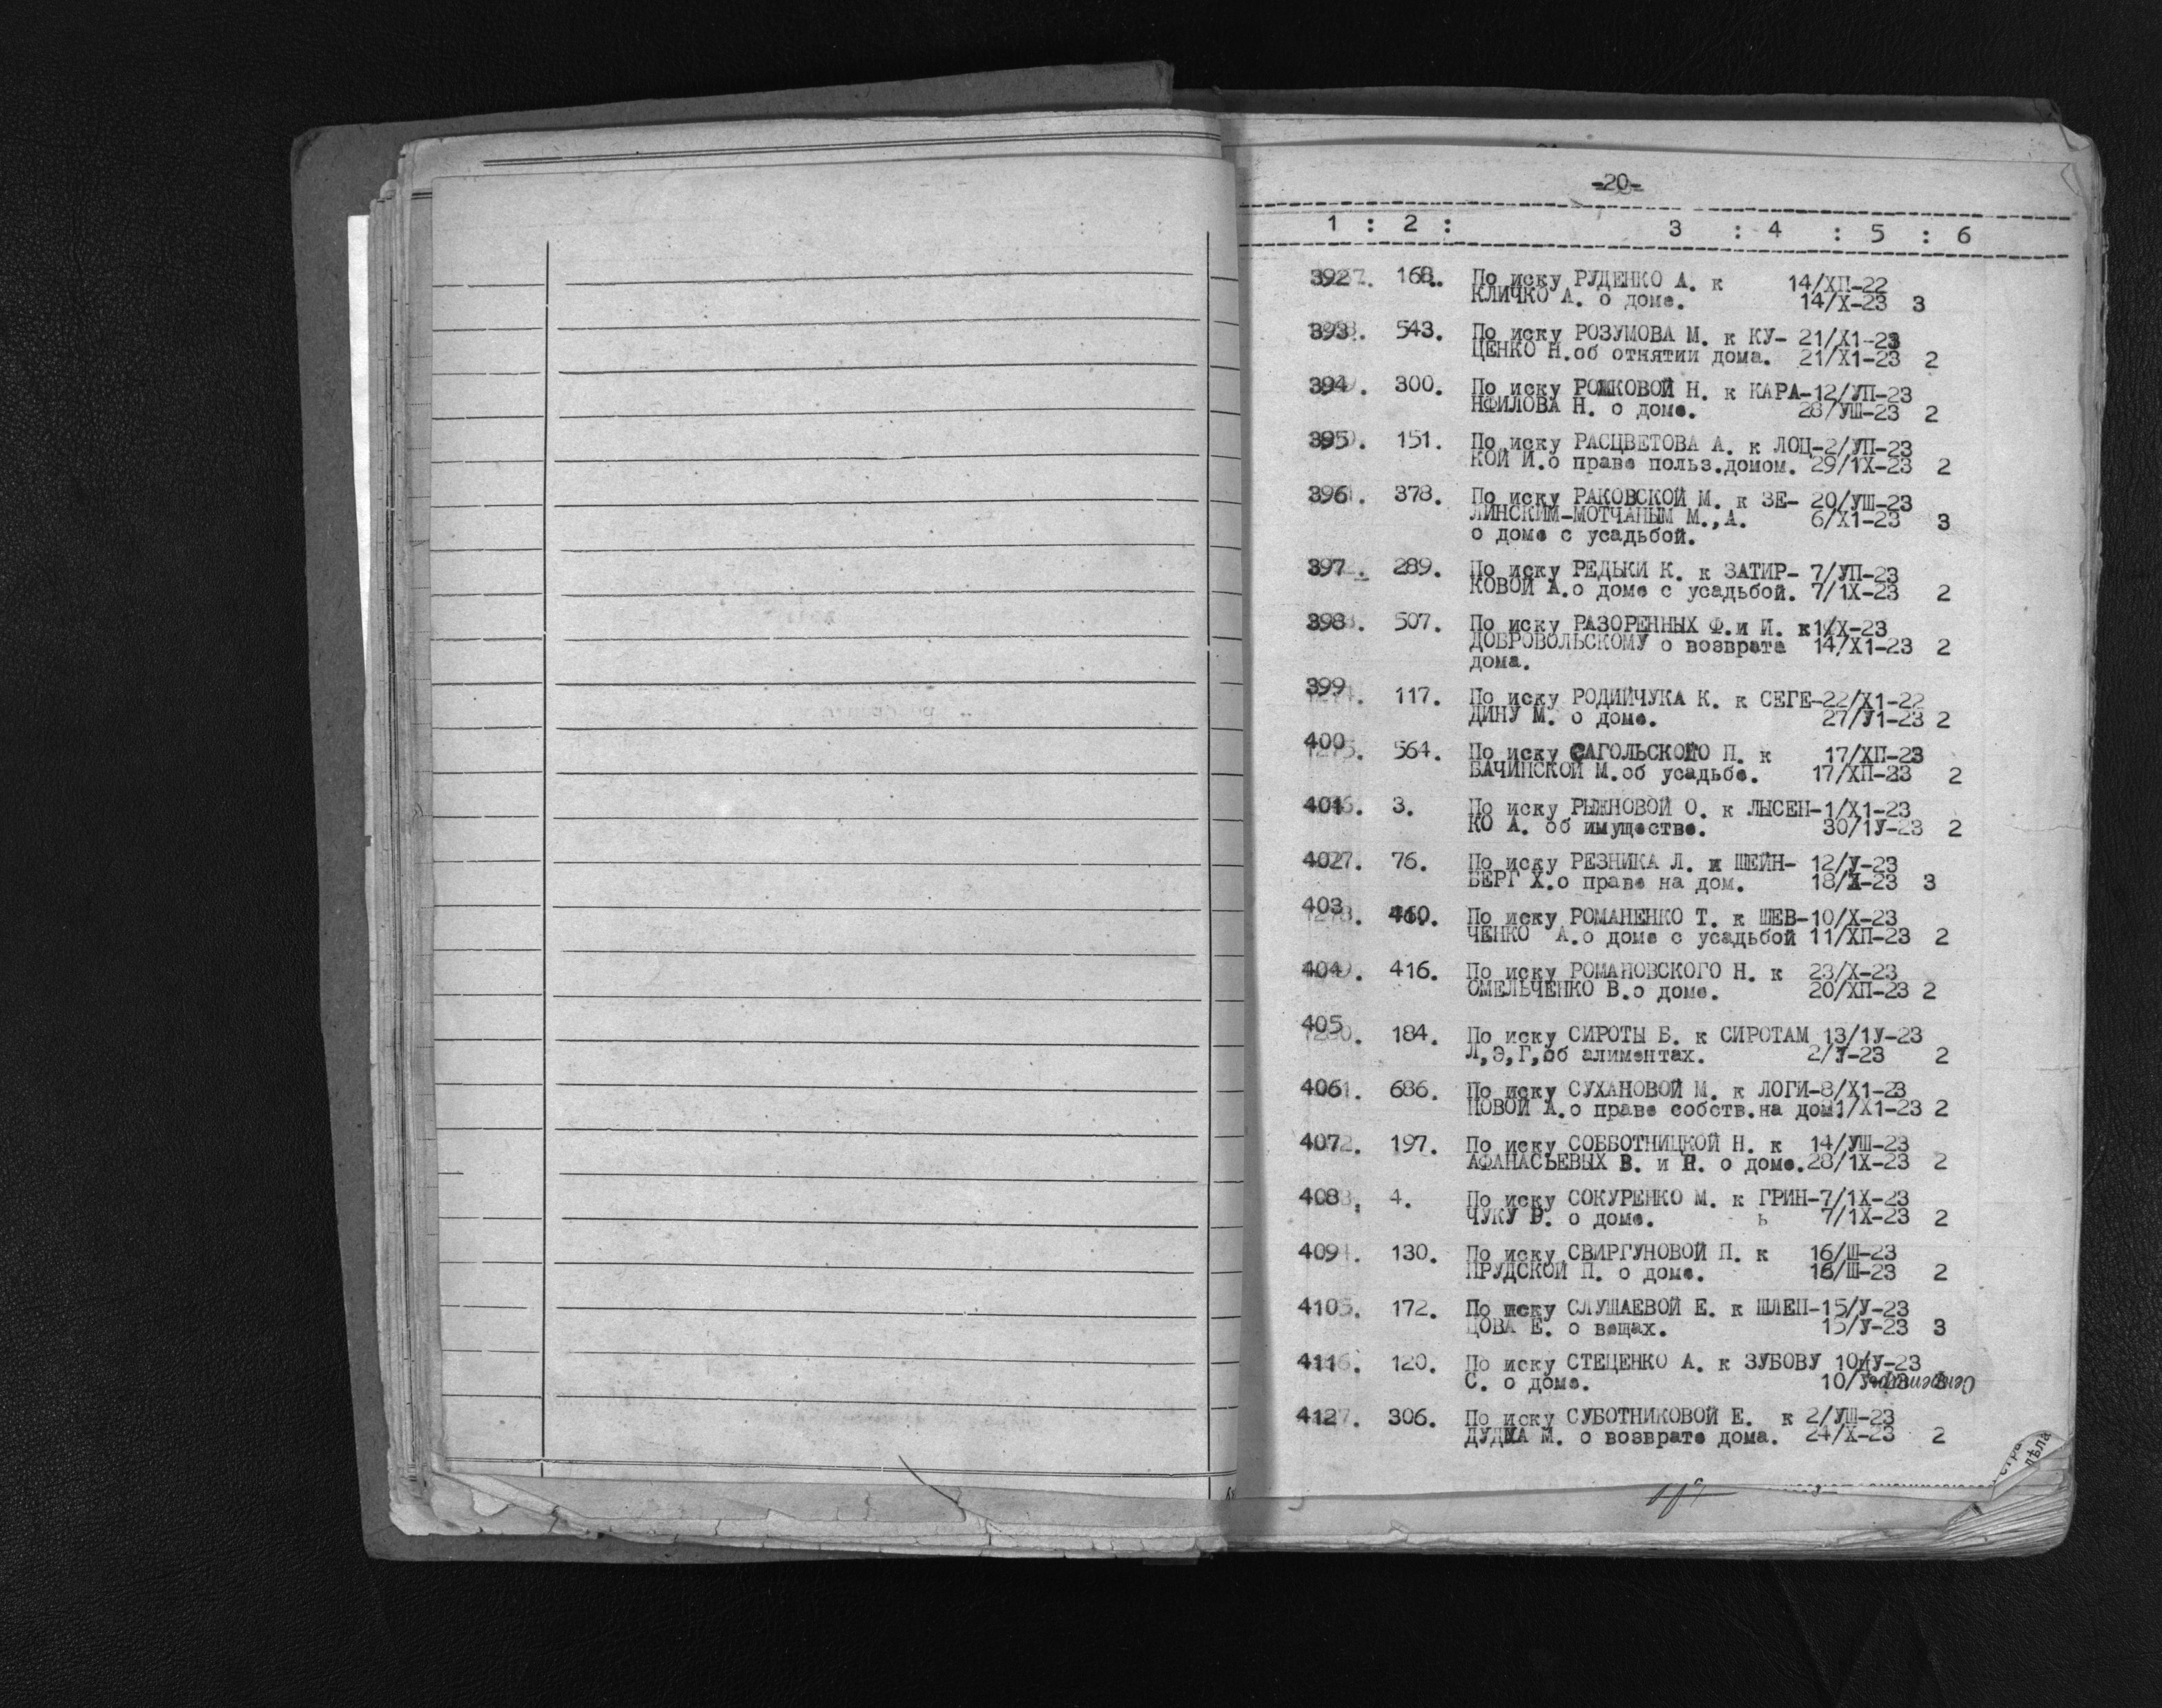 -20-
1 : 2 : 3 : 4 : 5 : 6
392. 168. По иску РУДЕНКО А. к 14/ХП-22
КЛИЧКО А. о доме. 14/Х-23 3
393. 543. По иску РОЗУМОВА М. к КУ- 21/Х1-23
ЦЕНКО Н.об отнятии дома. 21/Х1-23 2
394. 300. По иску РОШКОВОЙ Н. к КАРА-12/УП-23
НФИЛОВА Н. о доме. 28/УШ-23 2
395. 151. По иску РАСЦВЕТОВА А. к ЛОЦ-2/УП-23
КОЙ И.о праве польз.домом. 29/1Х-23 2
396. 378. По иску РАКОВСКОЙ М. к ЗЕ- 20/УШ-23
ЛИНСКИМ-МОТЧАНЫМ М.,А. 6/Х1-23 3
о доме с усадьбой.
397. 289. По иску РЕДЬКИ К. к ЗАТИР- 7/УП-23
КОВОЙ А.о доме с усадьбой. 7/1Х-23 2
398. 507. По иску РАЗОРЕННЫХ Ф.и И. к /Х-23
ДОБРОВОЛЬСКОМУ о возврате 14/Х1-23 2
дома.
399. 117. По иску РОДИЙЧУКА К. к СЕГЕ-22/Х1-22
ДИНУ М. о доме. 27/У1-23 2
400. 564. По иску САГОЛЬСКОГО П. к 17/ХП-23
БАЧИНСКОЙ М.об усадьбе. 17/ХП-23 2
401. 3. По иску РЫЖНОВОЙ О. к ЛЫСЕН-1/Х1-23
КО А. об имуществе. 30/1У-23 2
402. 76. По иску РЕЗНИКА Л. и ШЕЙН- 12/У-23
БЕРГ Х.о праве на дом. 18/Х-23 3
403. 460. По иску РОМАНЕНКО Т. к ШЕВ-10/Х-23
ЧЕНКО А.о доме с усадьбой 11/ХП-23 2
404. 416. По иску РОМАНОВСКОГО Н. к 23/Х-23
ОМЕЛЬЧЕНКО В.о доме. 20/ХП-23 2
405. 184. По иску СИРОТЫ Б. к СИРОТАМ 13/1У-23
Л,Э,Г,об алиментах. 2/У-23 2
406. 686. По иску СУХАНОВОЙ М. к ЛОГИ-8/Х1-23
НОВОЙ А.о праве собств.на дом /Х1-23 2
407. 197. По иску СОББОТНИЦКОЙ Н. к 14/УШ-23
АФАНАСЬЕВЫХ В. и Н. о доме.28/1Х-23 2
408. 4. По иску СОКУРЕНКО М. к ГРИН-7/1Х-23
ЧУКУ о доме. ь 7/1Х-23 2
409. 130. По иску СВИРГУНОВОЙ П. к 16/Ш-23
ПРУДСКОЙ П. о доме. 16/Ш-23 2
410. 172. По иску СЛУШАЕВОЙ Е. к ШЛЕП-15/У-23
ЦОВА Е. о вещах. 15/У-23 3
411. 120. По иску СТЕЦЕНКО А. к ЗУБОВУ 10/1У-23
С. о доме. 10/У-23 3
412. 306. По иску СУБОТНИКОВОЙ Е. к 2/УШ-23
ДУДКА М. о возврате дома. 24/Х-23 2